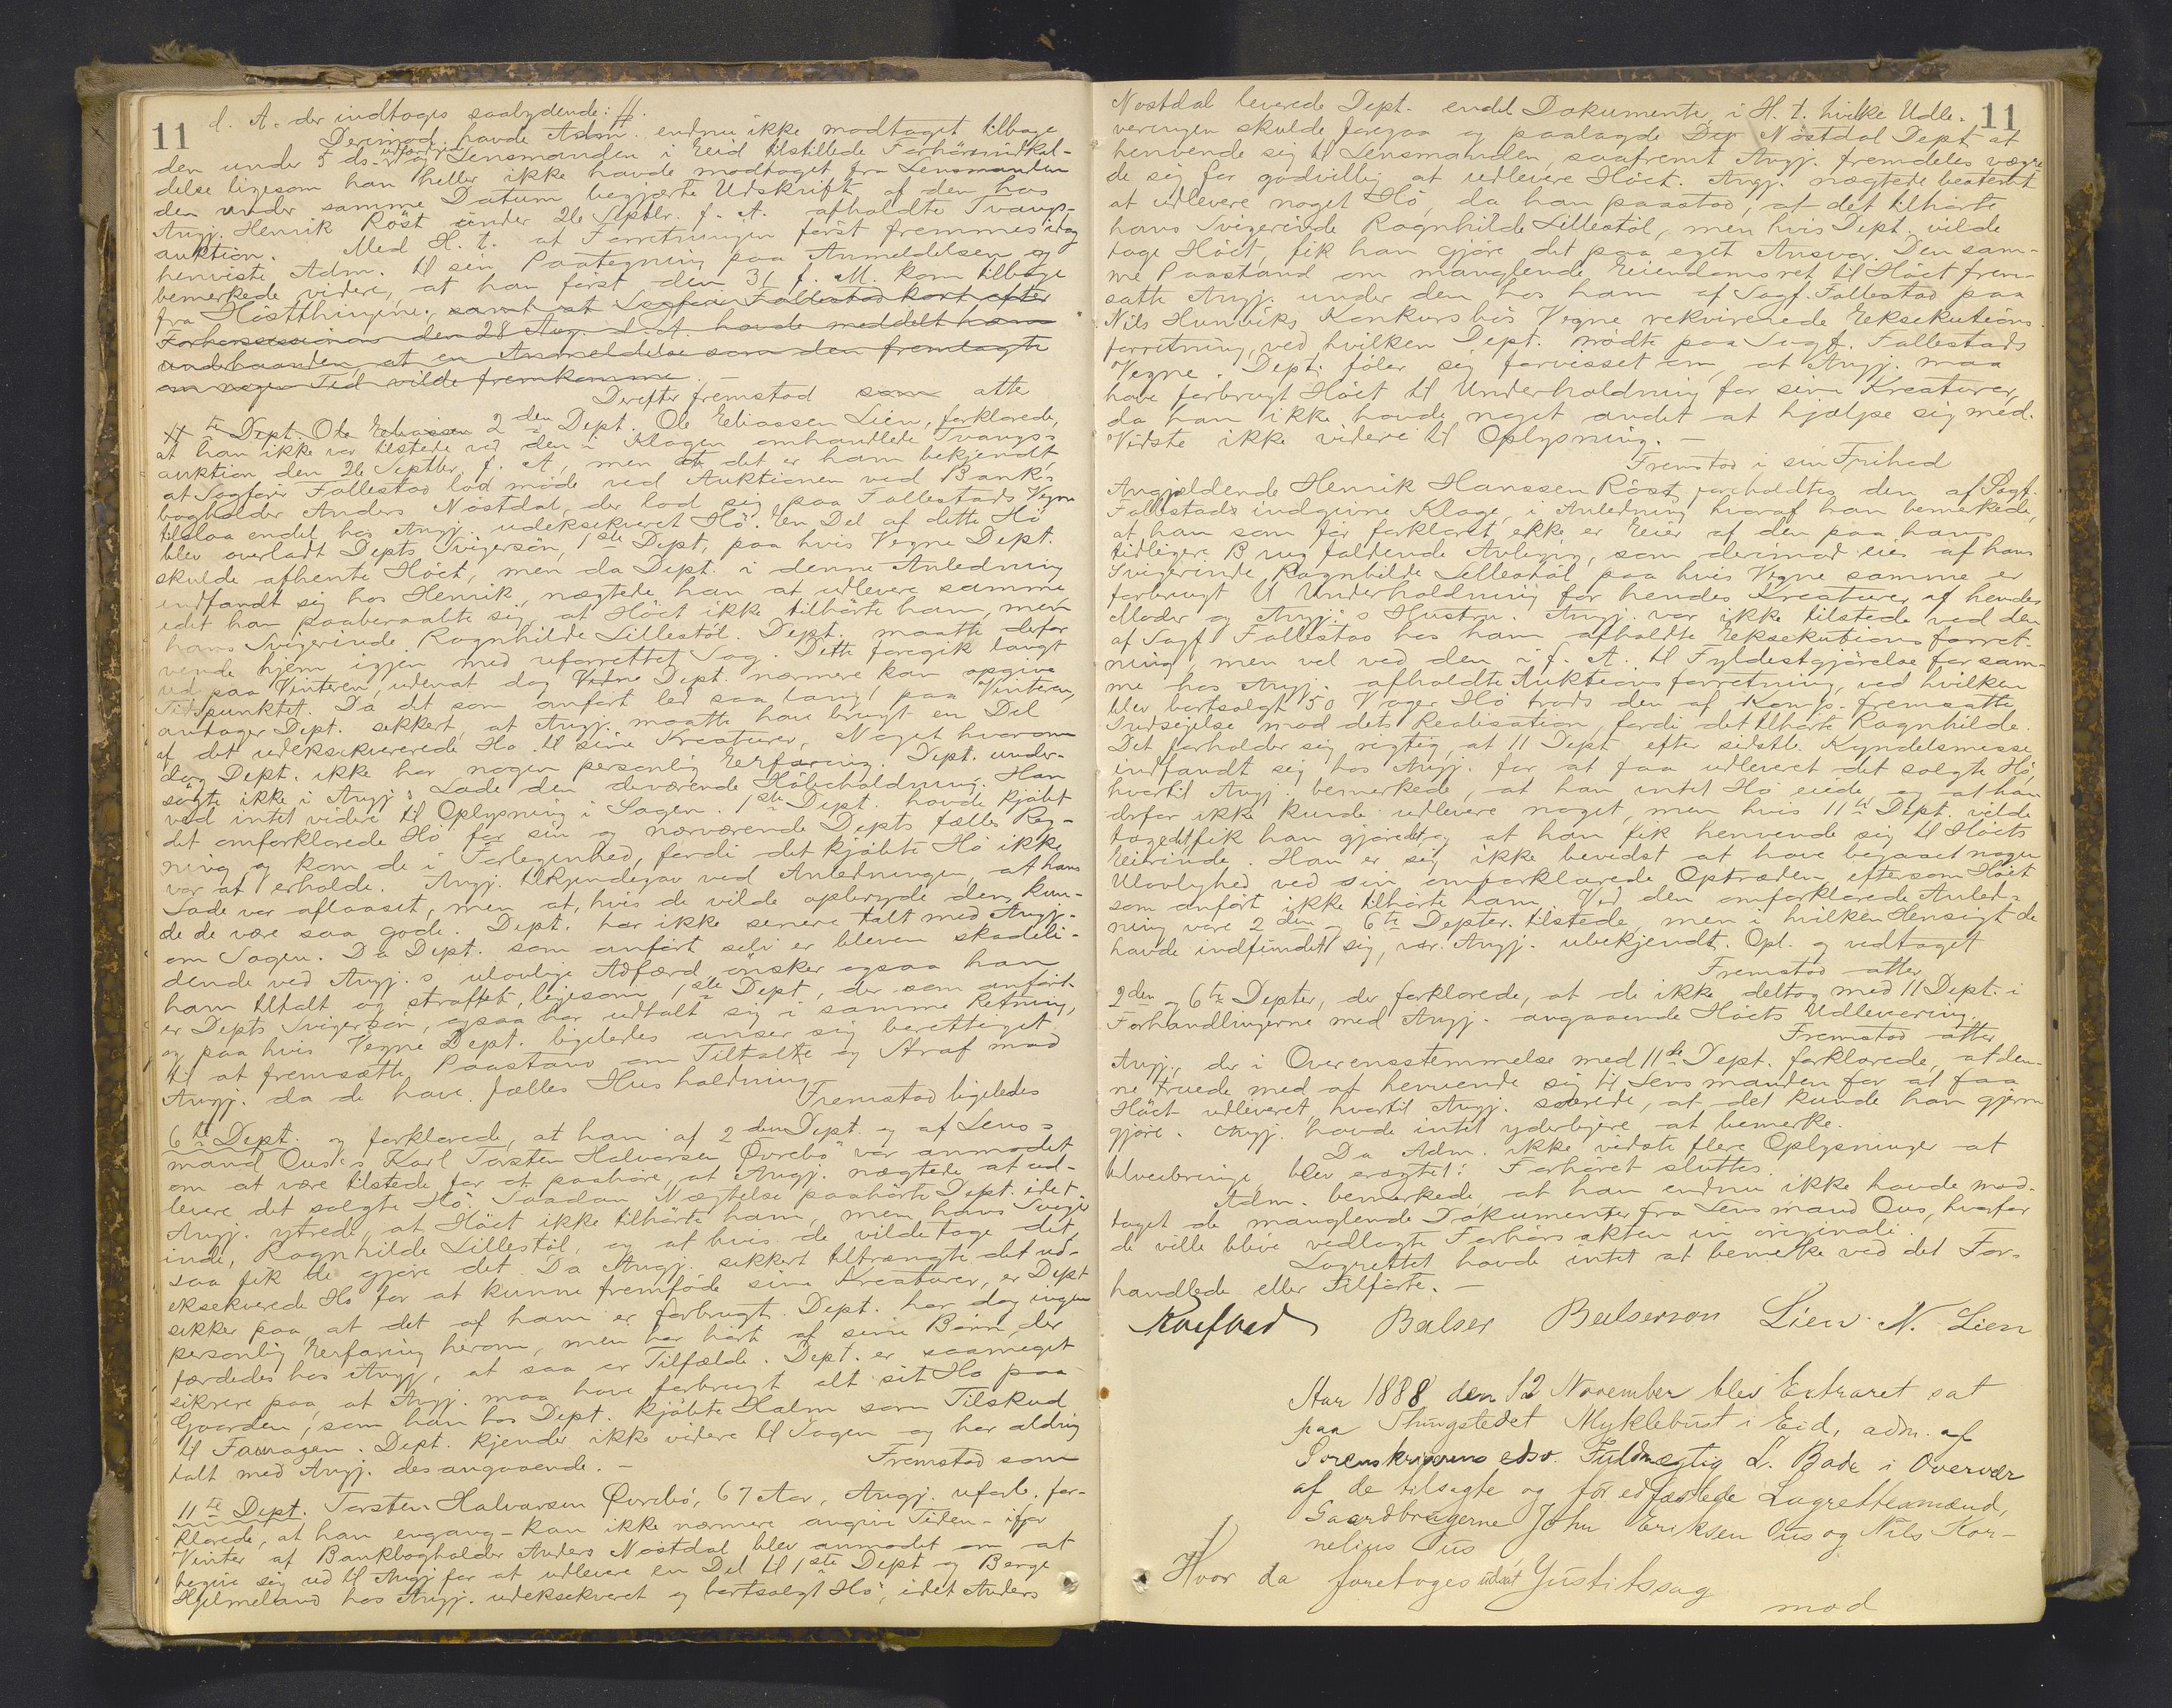 11
d. A. der indtages saalydende: #.
Derimod havde Adm. endnu ikke modtaget tilbage
den under 5 ds. udfærdigede og Lensmanden i Eid tilstillede Forhörsindkal-
delse ligesom han heller ikke havde modtaget fra Lensmanden
den under samme Datum begjærte Udskrift af den hos
Angj. Henrik Röst under 26 Septbr. f. A. afholdte Tvangs-
auktion. Med H. t. at Forretningen först fremmes idag
henviste Adm. til sin Paategning paa Anmeldelsen og
bemerkede videre, at han först den 31 f. M. kom tilbage
fra Höstthingene. samt at Sagförer Fallestad kort efter
Forhörssessionen den 28 Aug. d. A. havde meddelt ham
underhaanden, at en Anmeldelse som den fremlagte
om nogen Tid vilde fremkomme. –
Derefter fremstod som atter
# te Dept. Ole Eliassen 2den Dept. Ole Eliassen Lien, forklarede,
at han ikke var tilstede ved den i Klagen omhandlede Tvangs-
auktion den 26 Septbr. f. A., men at det er ham bekjendt,
at Sagförer Fallestad lod möde ved Auktionen ved Bank-
bogholder Anders Nöstdal, der lod sig paa Fallestads Vegne
tilslaa endel hos Angj. udeksekveret Hö. En Del af dette Hö
blev overladt Depts Svigersön, 1ste Dept., paa hvis Vegne Dept.
skulde afhente Höet, men da Dept. i denne Anledning
indfandt sig hos Henrik, nægtede han at udlevere samme,
idet han paaberaabte sig, at Höet ikke tilhörte ham, men
hans Svigerinde Ragnhilde Lillestöl. Dept. maatte derfor
vende hjem igjen med uforrettet Sag. Dette foregik langt
ud paa Vinteren, udenat dog Vidne Dept. nærmere kan opgive
Tidspunktet. Da det som anfört led saa langt paa Vinteren,
antager Dept. sikkert, at Angj. maatte have brugt en Del
af det udeksekverede Hö til sine Kreaturer, Noget hvorom
dog Dept. ikke har nogen personlig Erfaring. Dept. under-
sögte ikke i Angj.s Lade den deværende Höbeholdning. Han
ved intet videre til Oplysning i Sagen. 1ste Dept. havde kjöbt
det omforklarede Hö for sin og nærværende Depts fælles Reg-
ning og kom de i Forlegenhed, fordi det kjöbte Hö ikke
var at erholde. Angj. tilkjendegav ved Anledningen, at hans
Lade var aflaaset, men at, hvis de vilde opbryde den, kun-
de de være saa gode. Dept. har ikke senere talt med Angj.
om Sagen. Da Dept. som anfört selv er bleven skadeli-
dende ved Angj.s ulovlige Adfærd, önsker ogsaa han
ham tiltalt og straffet, ligesom 1ste Dept., der som anfört
er Depts Svigersön, ogsaa har udtalt sig i samme Retning,
og paa hvis Vegne Dept. ligeledes anser sig berettiget
til at fremsætte Paastand om Tiltalte og Straf mod
Angj. da de have fælles Husholdning.
Fremstod ligeledes
6te Dept. og forklarede, at han af 2den Dept. og af Lens-
mand Ous's Karl Torsten Halvorsen Övrebö var anmodet
om at være tilstede for at paahöre, at Angj. nægtede at ud-
levere det solgte Hö. Saadan Nægtelse paahörte Dept. idet
Angj. ytrede, at Höet ikke tilhörte ham, men hans Sviger-
inde, Ragnhilde Lillestöl, og at hvis de vilde tage det,
saa fik de gjöre det. Da Angj. sikkert tiltrængte det ud-
eksekverede Hö for at kunne fremföde sine Kreaturer, er Dept.
sikker paa, at det af ham er forbrugt. Dept. har dog ingen
personlig Erfaring herom, men har hört af sine Börn, der
færdedes hos Angj., at saa er Tilfælde. Dept. er saameget
sikrere paa, at Angj. maa have forbrugt alt sit Hö paa
Gaarden, som han hos Dept. kjöbte Halm som Tilskud
til Fouragen. Dept. kjender ikke videre til Sagen og har aldrig
talt med Angj. desangaaende. –
Fremstod som
11te Dept. Torsten Halvorsen Övrebö, 67 Aar, Angj. uforb. for-
klarede, at han engang – kan ikke nærmere angive Tiden – ifjor
Vinter af Bankbogholder Anders Nöstdal blev anmodet om at
begive sig ud til Angj. for at udlevere en Del til 1ste Dept. og Berge
Hjelmeland hos Angj. udeksekveret og bortsolgt Hö, idet Anders
11
Nöstdal leverede Dept. endel Dokumenter, i H. t. hvilke Udle-
veringen skulde foregaa og paalagde Dep Nöstdal Dept. at
henvende sig til Lensmanden, saafremt Angj. fremdeles vægre
de sig for godvillig at udlevere Höet. Angj. nægtede bestemt
at udlevere noget Hö, da han paastod, at det tilhörte
hans Svigerinde Ragnhilde Lillestöl, men hvis Dept. vilde
tage Höet, fik han gjöre det paa eget Ansvar. Den sam-
me Paastand om manglende Eiendomsret til Höet frem-
satte Angj. under den hos ham af Sagf. Fallestad paa
Nils Hunviks Konkursbos Vegne rekvirerede Eksekutions-
forretning, ved hvilken Dept. mödte paa Sagf. Fallestads
Vegne. Dept. föler sig forvisset om, at Angj. maa
have forbrugt Höet til Underholdning for sine Kreaturer,
da han ikke havde noget andet at hjælpe sig med.
Vidste ikke videre til Oplysning. –
Fremstod i sin Frihed
Angjældende Henrik Hanssen Röst, foreholdtes den af Sagf.
Fallestads indgivne Klage, i Anledning hvoraf han bemerkede,
at han som för forklaret ikke er Eier af den paa hans
tidligere Brug faldende Avleing, som derimod eies af hans
Svigerinde Ragnhilde Lillestöl paa hvis Vegne samme er
forbrugt til Underholdning for hendes Kreaturer af hendes
Moder og Angj.s Hustru. Angj. var ikke tilstede ved den
af Sagf. Fallestad hos ham afholdte Eksekutionsforret-
ning, men vel ved den i f. A. til Fyldestgjörelse for sam-
me hos Angj. afholdte Auktionsforretning, ved hvilken
blev bortsolgt 50 Vaager Hö trods den af Komp. fremsatte
Indsigelse mod dets Realisation, fordi det tilhörte Ragnhilde.
Det forholder sig rigtig, at 11 Dept. efter sidstl. Kyndelsmesse
indfandt sig hos Angj. for at faa udleveret det solgte Hö,
hvortil Angj. bemerkede, at han intet Hö eiede, og at han
derfor ikke kunde udlevere noget, men hvis 11te Dept. vilde
tage det fik han gjöre det, og at han fik henvende sig til Höets
Eierinde. Han er sig ikke bevidst at have begaaet nogen
Ulovlighed ved sin omforklarede Optræden, eftersom Höet
som anfört ikke tilhörte ham. Ved den omforklarede Anled-
ning vare 2den og 6te Depter. tilstede, men i hvilken Hensigt de
havde indfundet sig, var Angj. ubekjendt. Opl. og vedtaget
Fremstod atter
2den og 6te Depter, der forklarede, at de ikke deltog med 11 Dept. i
Forhandlingerne med Angj. angaaende Höets Udlevering.
Fremstod atter
Angj., der i Overensstemmelse med 11te Dept. forklarede, at den-
ne truede med at henvende sig til Lensmanden for at faa
Höet udleveret, hvortil Angj. svarede, at det kunde han gjerne
gjöre. Angj. havde intet yderligere at bemerke.
Da Adm. ikke vidste flere Oplysninger at
tilveiebringe blev eragtet: Forhöret sluttes.
Adm. bemerkede at han endnu ikke havde mod-
taget de manglende Dokumenter fra Lensmand Ous, hvorfor
de ville blive vedlagte Forhörsakten in originali.
Lagrettet havde intet at bemerke ved det For-
handlede eller Tilförte. –
Balser Balserson Lien N. Lien
Aar 1888 den 12 November blev Extraret sat
paa Thingstedet Myklebust i Eid, adm. af
Sorenskriverens edsv. Fuldmægtig L. Bade i Overvær
af de tilsagte og för edfæstede Lagrettesmænd,
Gaardbrugerne John Eriksen Ous og Nils Kor-
nelius Ous
Hvor da foretoges udsat Justitssag
mod